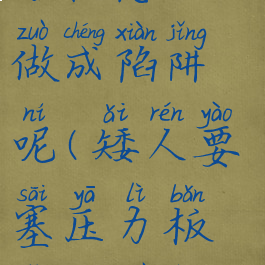 zuò chéng xiàn jǐng
做成陷阱
ní ǎi rén yào
呢(矮人要
sāi yā lì bǎn
塞压力板